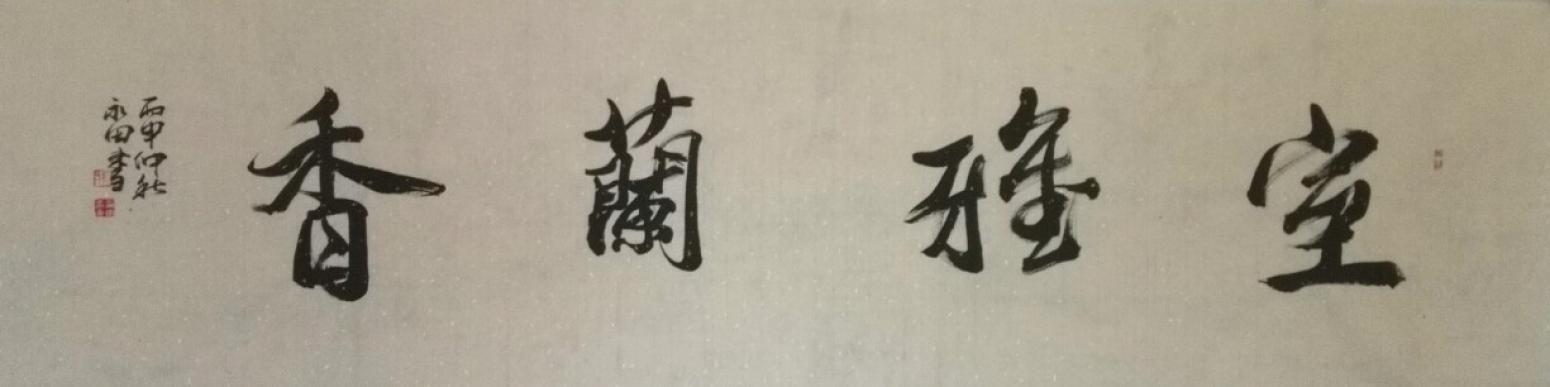 室雅蘭香
丙申仲秋
永田書